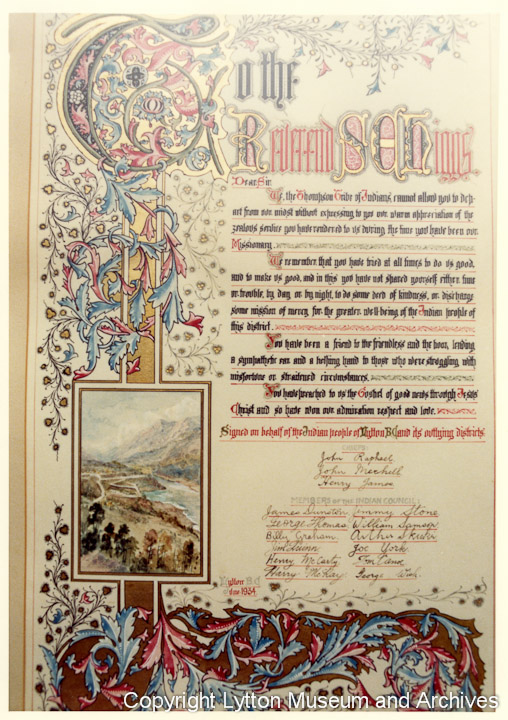 To the
Reverend
Dear Sir
We, the Thompson Tribe of Indians, cannot allow you to dep-
art from our midst without expressing to you our warm appreciation of the
zealous service you have rendered to us during the time you have been our
Missionary.
We remember that you have tried at all times to do us good,
and to make us good, and in this you have not spared yourself either time
or trouble, by day, or by night, to do some deed of kindness, or discharge
some mission of mercy, for the greater well-being of the Indian people of
this district.
You have been a friend to the friendless and the poor, lending
a sympathetic ear, and a helping hand to those who were struggling with
misfortune or straitened circumstances.
You have preached to us the Gospel of good news through Jesus
Christ and so have won our admiration respect and love.
Signed on behalf of the Indian people of Lytton B.C. and its outlying districts.
CHIEFS
John Raphael
John Mechell
Henry James
MEMBERS OF THE INDIAN COUNCIL:
James Dunstan Jimmy Stone
George Thomas William Sampson
Billy Graham Arthur
Joe York
Henry McCarty
Harry McKay George
Lytton B.C.
June 1934.
Copyright Lytton Museum and Archives